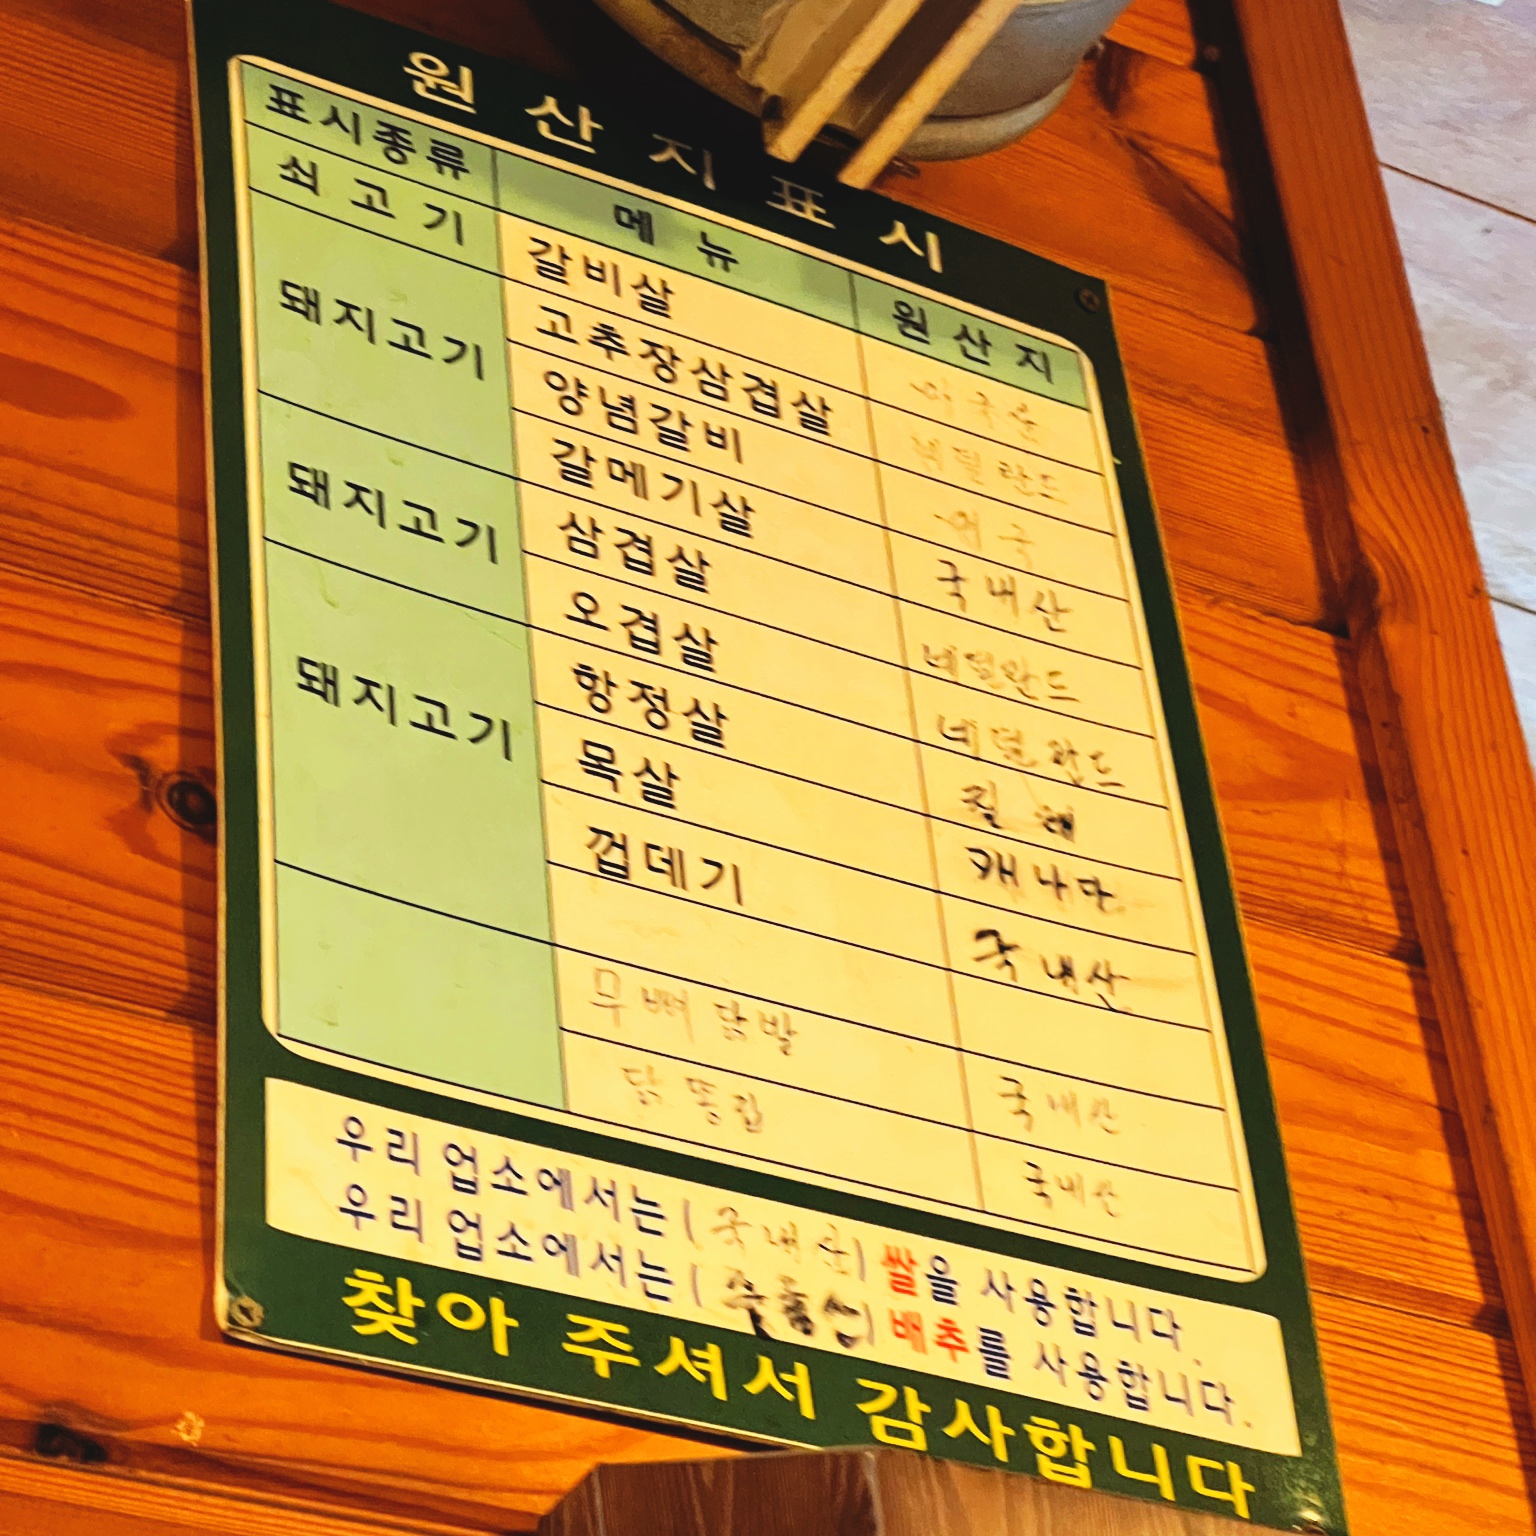 원산지표시
표시종류 메뉴 원산지
쇠고기 갈비살 미국산
돼지고기 고추장삼겹살 네덜란드
양념갈비 미국
갈메기살 국내산
돼지고기 삼겹살 네덜란드
오겹살 네덜란드
돼지고기 항정살 칠레
목살 캐나다
껍데기 국내산
무뼈닭발 국내산
닭똥집 국내산
우리 업소에서는 (국내산) 쌀을 사용합니다.
우리 업소에서는 ( ) 배추를 사용합니다.
찾아 주셔서 감사합니다